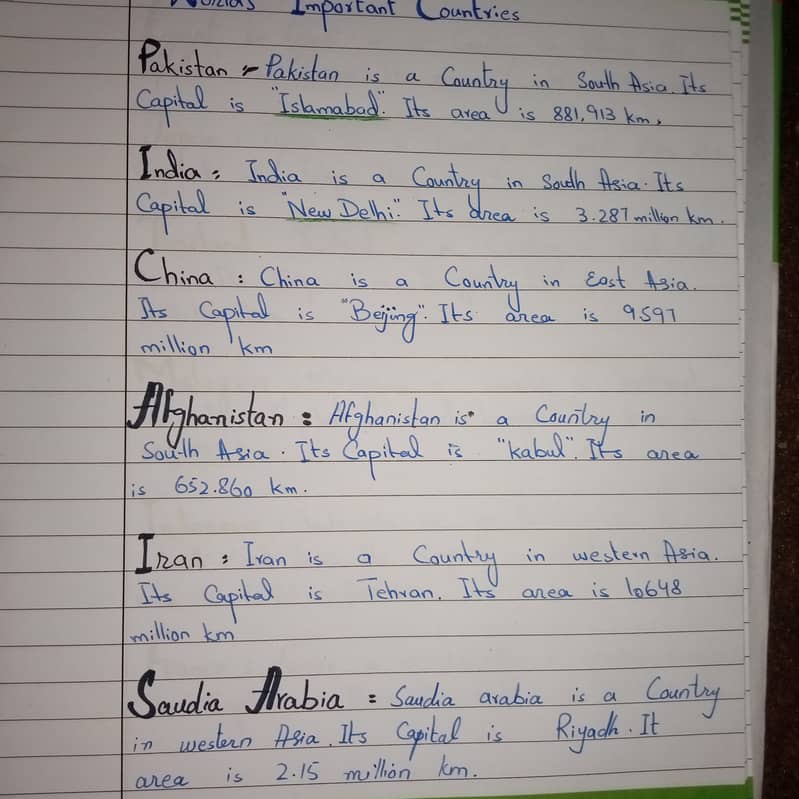 World's Important Countries
Pakistan :- Pakistan is a Country in South Asia. Its
Capital is "Islamabad". Its area is 881,913 km.
India : India is a Country in South Asia. Its
Capital is "New Delhi". Its area is 3.287 million km.
China : China is a Country in East Asia.
Its Capital is "Beijing". Its area is 9597
million km
Afghanistan : Afghanistan is a Country in
South Asia. Its Capital is "kabul". Its area
is 652.860 km.
Iran : Iran is a Country in western Asia.
Its Capital is Tehran. Its area is 10648
million km
Saudia Arabia : Saudia arabia is a Country
in western Asia. Its Capital is Riyadh. It
area is 2.15 million km.